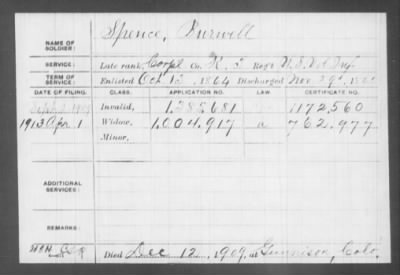 NAME OF SOLDIER: Spence, Burwell
SERVICE: Late rank, Corpl Co. K, 5 Reg't U.S. Vol Inf.
TERM OF SERVICE: Enlisted Oct 12, 1864 Discharged Nov 29
DATE OF FILING. CLASS. APPLICATION NO. LAW. CERTIFICATE NO.
Invalid, 1,285,681 1172,560
1913 Apr 1 Widow, 1,004,917 a 762,977
Minor,
ADDITIONAL SERVICES:
REMARKS:
Died Dec 12, 1909, at Gunnison, Colo.